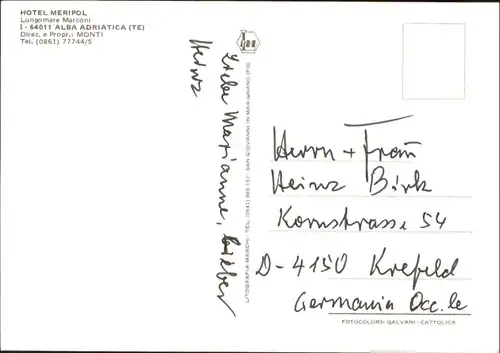 HOTEL MERIPOL
Lungomare Marconi
I - 64011 ALBA ADRIATICA (TE)
Direz. e Propr.: MONTI
Tel. (0861) 77744/5
Liebe Marianne, lieber
Heinz
LITOGRAFIA MARCHI - TEL. (0541) 955 157 SAN GIOVANNI IN MARIGNANO (FO)
Herrn + Frau
Heinz Birk
Kornstrasse 54
D-4150 Krefeld
Germania Occ.le
FOTOCOLORS: GALVANI - CATTOLICA